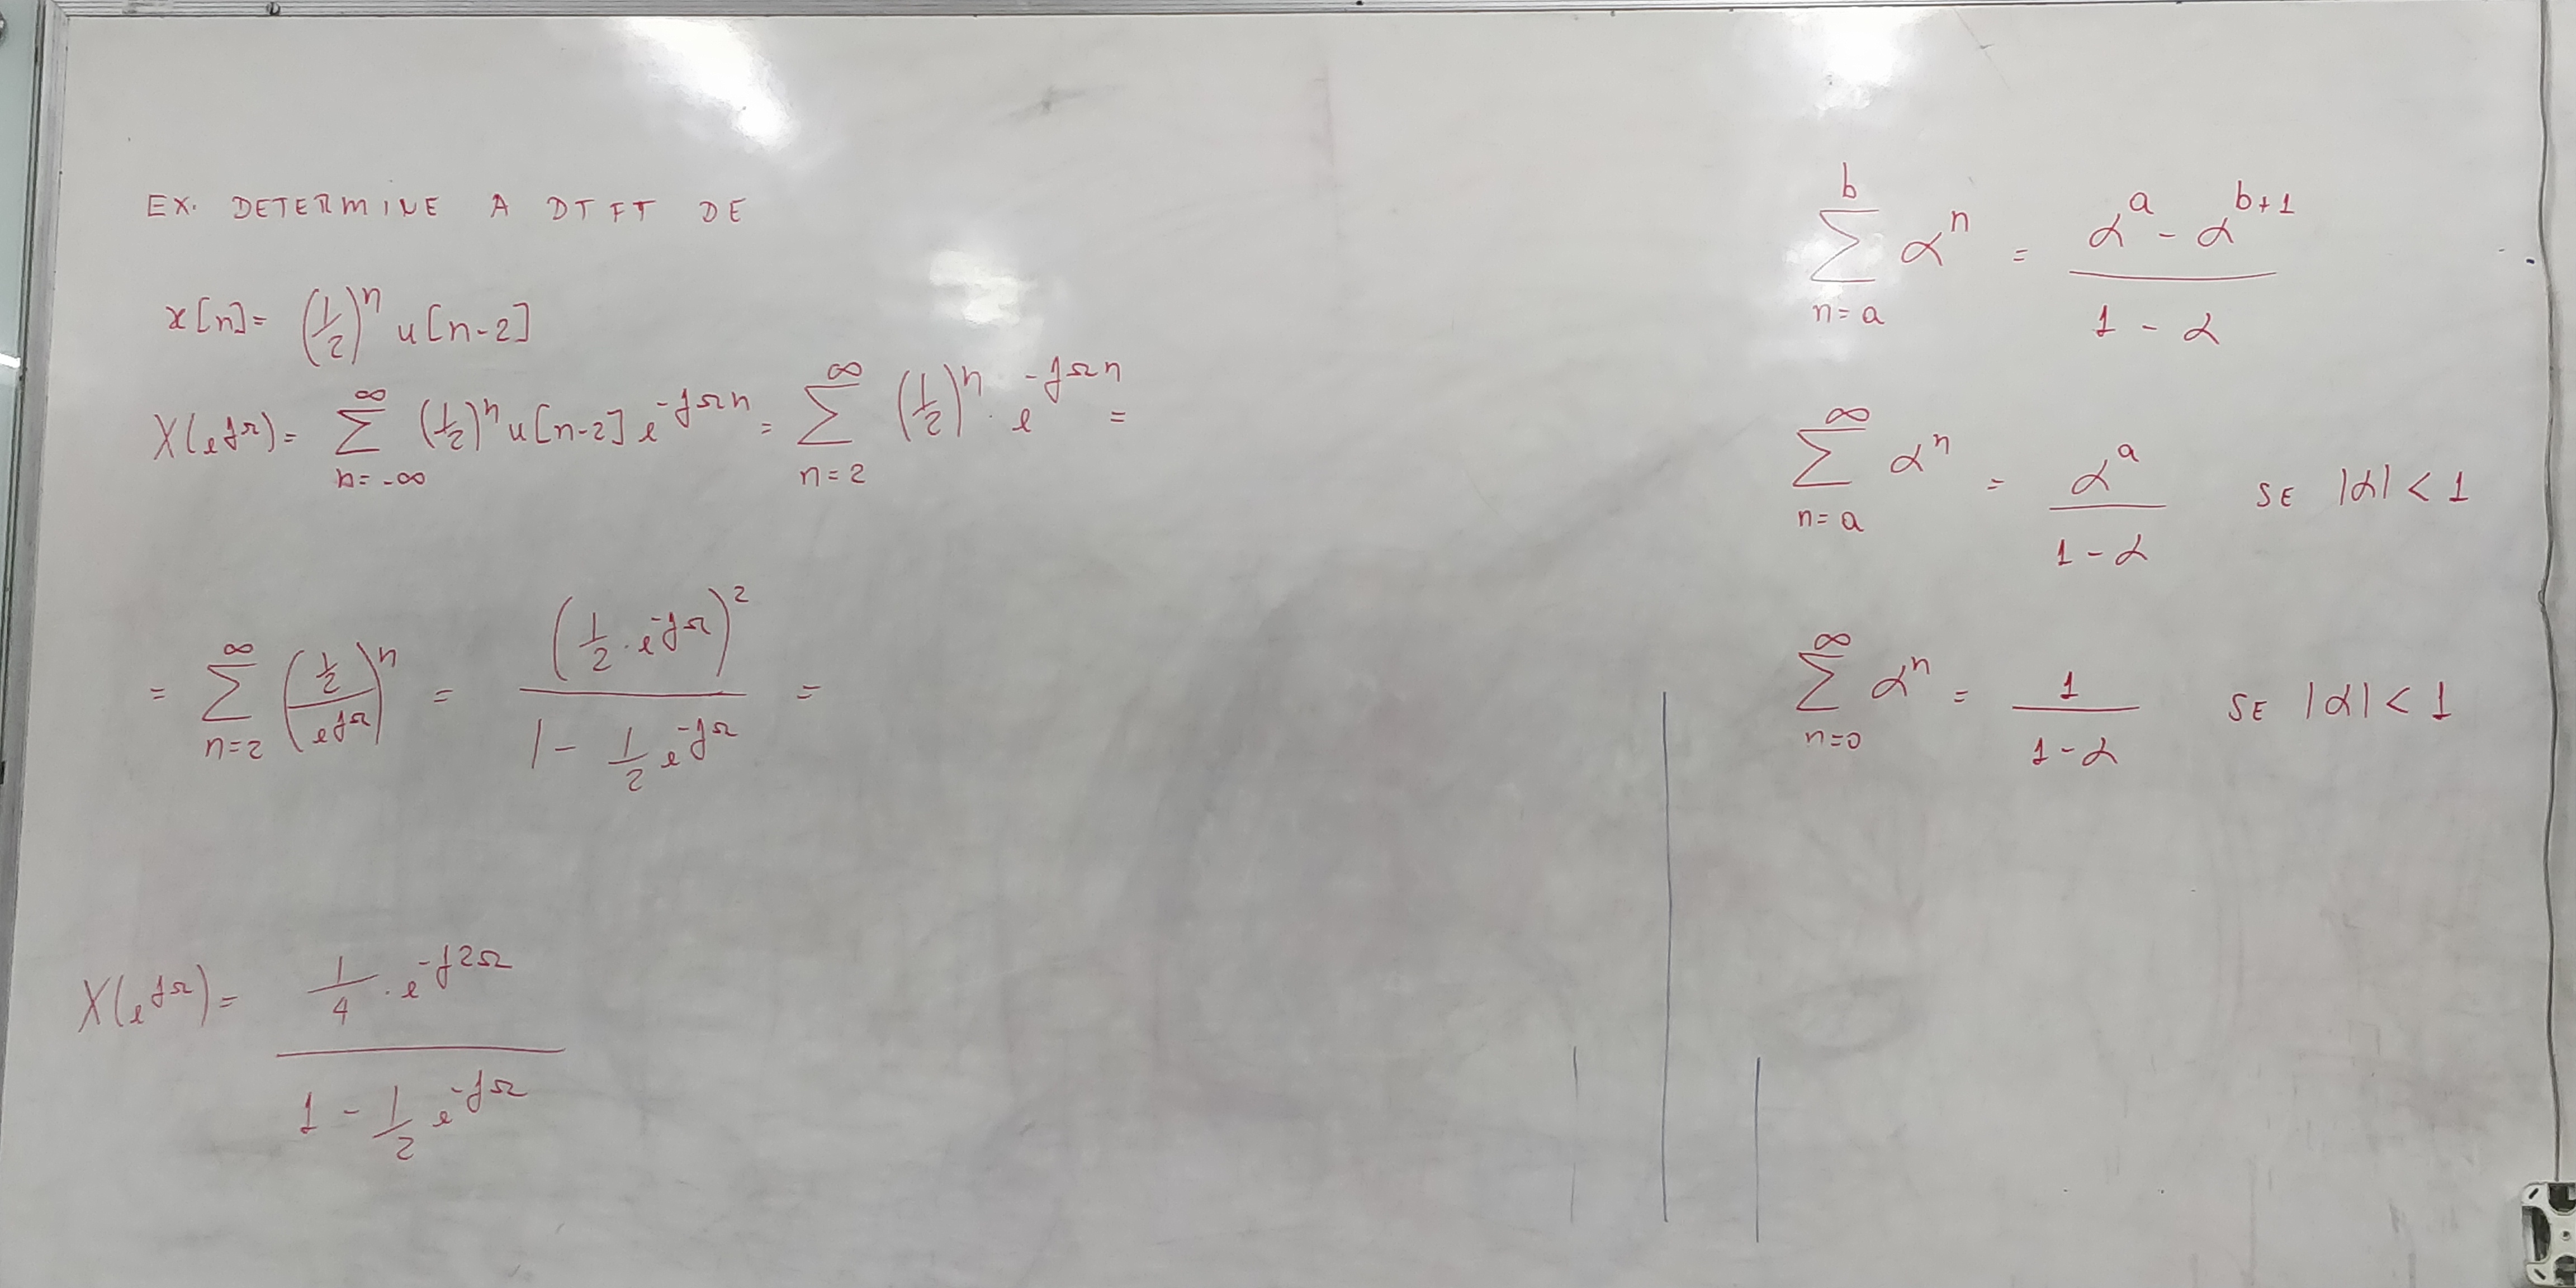 EX. DETERMINE A DTFT DE
x[n] = (1/2)^n u[n-2]
X(e^{jΩ}) = ∑_{n=-∞}^{∞} (1/2)^n u[n-2] e^{-jΩn} = ∑_{n=2}^{∞} (1/2)^n · e^{-jΩn} =
= ∑_{n=2}^{∞} ((1/2)/(e^{jΩ}))^n = (1/2 · e^{-jΩ})^2 / (1 - 1/2 e^{-jΩ}) =
X(e^{jΩ}) = (1/4 · e^{-j2Ω}) / (1 - 1/2 e^{-jΩ})
∑_{n=a}^{b} α^n = (α^a - α^{b+1}) / (1 - α)
∑_{n=a}^{∞} α^n = α^a / (1 - α) SE |α| < 1
∑_{n=0}^{∞} α^n = 1 / (1 - α) SE |α| < 1